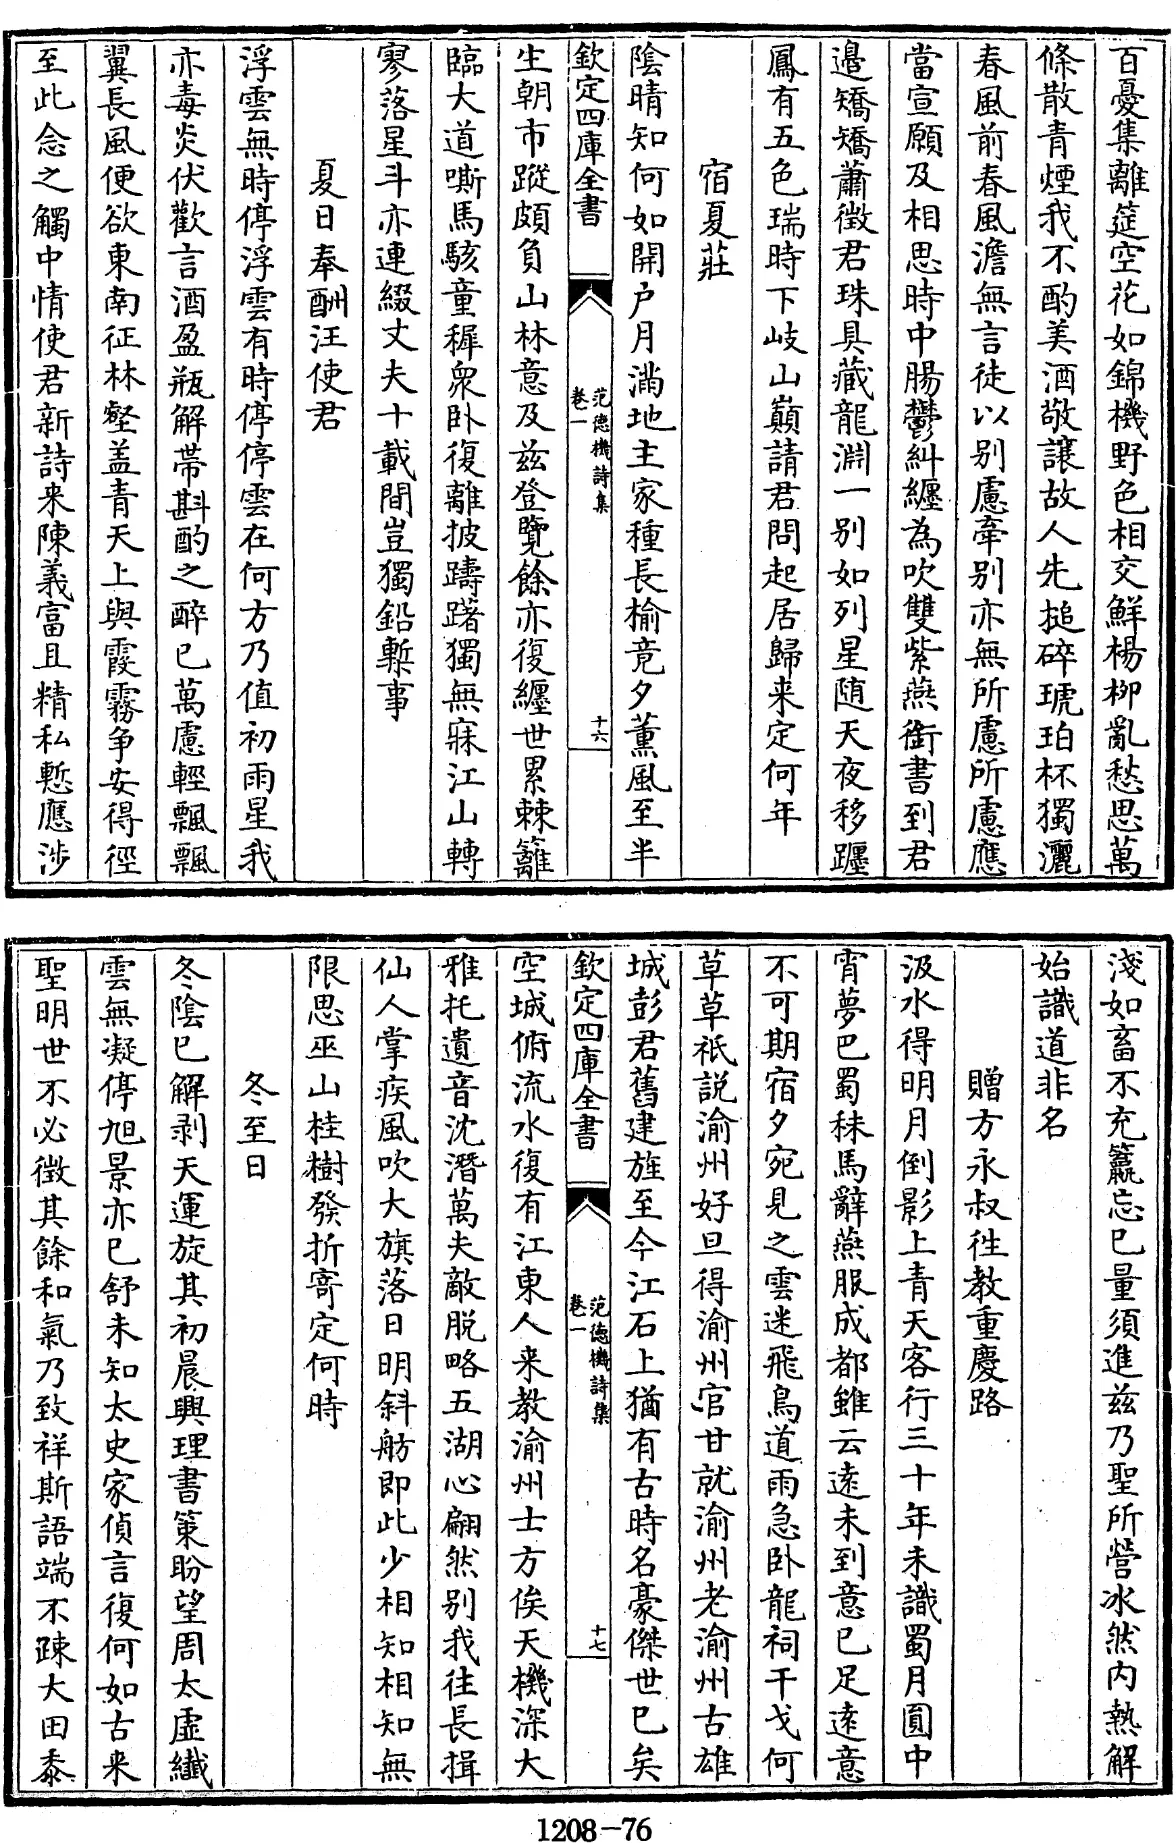 百憂集離筵空花如錦機野色相交鮮楊栁亂愁思萬
條散青煙我不酌美酒敬讓故人先搥碎琥珀杯獨灑
春風前春風澹無言徒以别慮牽别亦無所慮所慮應
當宣願及相思時中腸鬱糾纏為吹雙紫燕銜書到君
邉矯矯蕭徴君珠具藏龍淵一别如列星随天夜移躔
鳳有五色瑞時下岐山巔請君問起居歸来定何年
宿夏莊
陰晴知何如開户月滿地主家種長榆竟夕薰風至半
欽定四庫全書
范德機詩集
卷一
十六
生朝市蹤頗負山林意及兹登覽餘亦復纒世累棘籬
臨大道嘶馬駭童穉衆卧復離披躊躇獨無寐江山轉
寥落星斗亦連綴丈夫十載間豈獨鉛槧事
夏日奉酬汪使君
浮雲無時停浮雲有時停停雲在何方乃值初雨星我
亦毒炎伏歡言酒盈瓶解帯斟酌之醉已萬慮輕飄飄
翼長風便欲東南征林壑盖青天上與霞霧争安得徑
至此念之觸中情使君新詩来陳義富且精私慙應涉
淺如畜不充籯忘已量須進兹乃聖所營冰然内熱解
始識道非名
贈方永叔徃教重慶路
汲水得明月倒影上青天客行三十年未識蜀月圓中
宵夢巴蜀秣馬辭燕服成都雖云逺未到意已足逺意
不可期宿夕宛見之雲迷飛鳥道雨急卧龍祠干戈何
草草祇説渝州好旦得渝州官甘就渝州老渝州古雄
城彭君舊建旌至今江石上猶有古時名豪傑世已矣
欽定四庫全書
范德機詩集
卷一
十七
空城俯流水復有江東人来教渝州士方俟天機深大
雅托遺音沈潛萬夫敵脱略五湖心翩然别我往長揖
仙人掌疾風吹大旗落日明斜舫即此少相知相知無
限思巫山桂樹發折寄定何時
冬至日
冬隂已解剥天運旋其初晨興理書策盼望周太虚纎
雲無凝停旭景亦已舒未知太史家偵言復何如古来
聖明世不必徴其餘和氣乃致祥斯語端不踈大田黍
1208-76